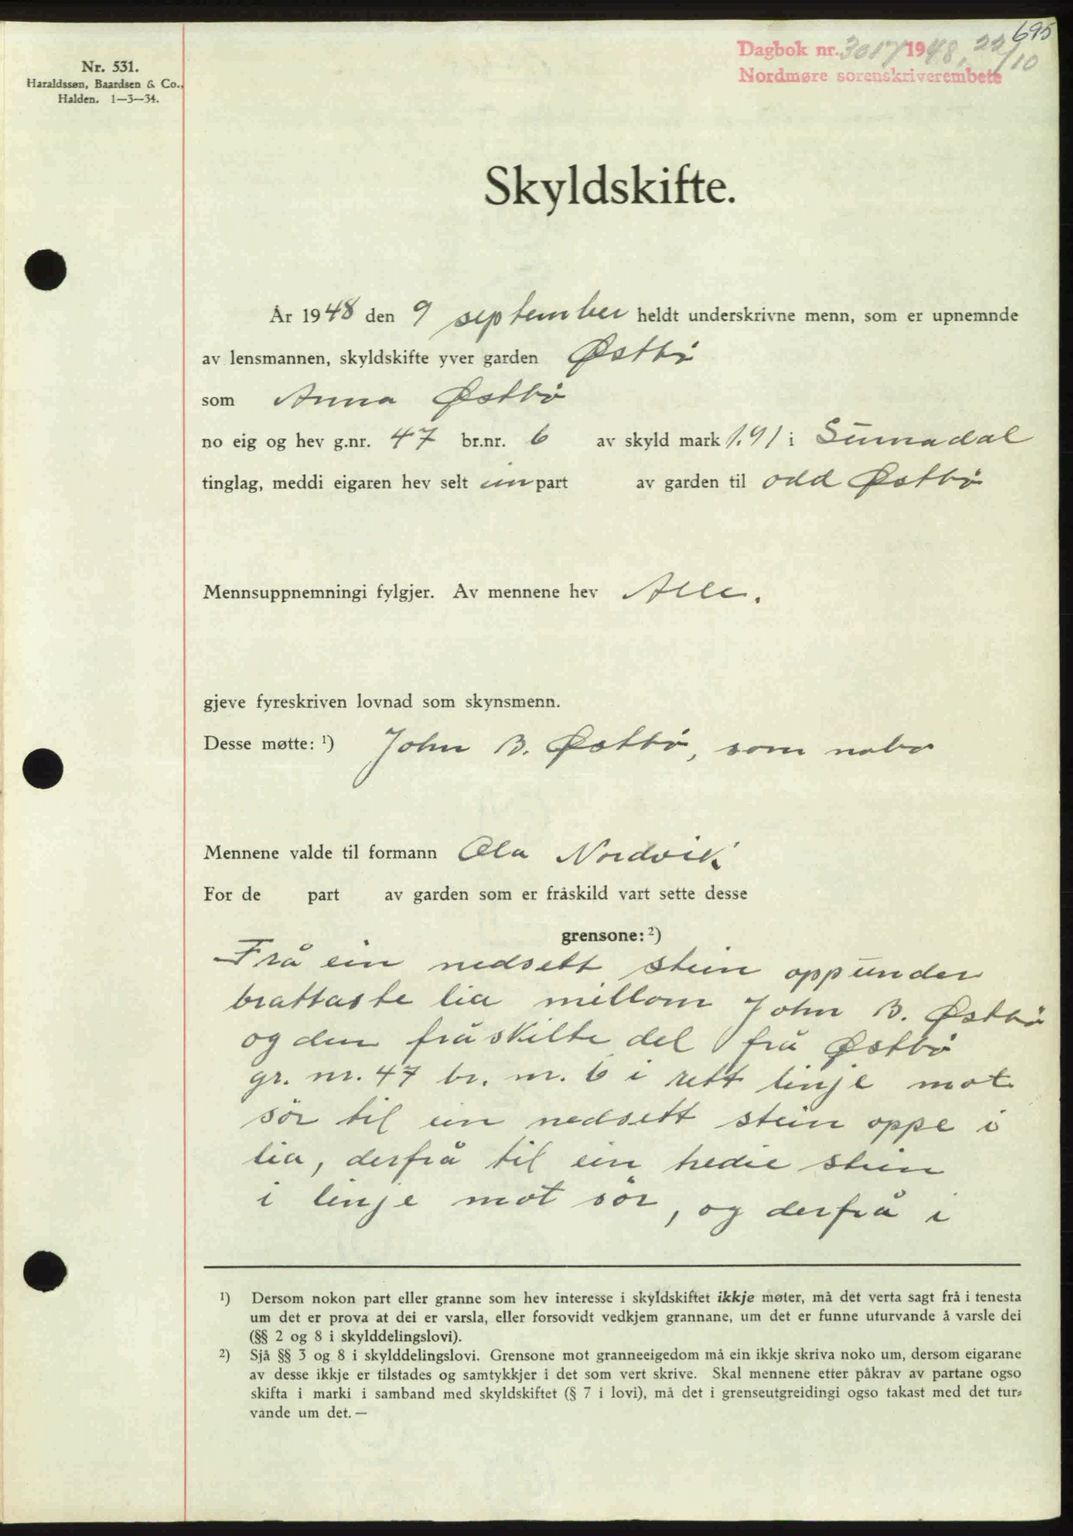 695
Dagbok nr. 3017 1948, 22/10
Nordmøre sorenskriverembete
Nr. 531.
Haraldssøn, Baardsen & Co.,
Halden. 1—3—34.
Skyldskifte.
År 1948 den 9 september heldt underskrivne menn, som er upnemnde
av lensmannen, skyldskifte yver garden Østbö
som Anna Østbö
no eig og hev g.nr. 47 br.nr. 6 av skyld mark 1.91 i Surnadal
tinglag, meddi eigaren hev selt ein part av garden til Odd Østbö
Mennsuppnemningi fylgjer. Av mennene hev Alle.
gjeve fyreskriven lovnad som skynsmenn.
Desse møtte: ¹) John B. Østbö, som nabo
Mennene valde til formann Ola Nordvik
For de part av garden som er fråskild vart sette desse
grensone: ²)
Frå ein nedsett stein oppunder
brattaste lia millom John B. Østbö
og den fråskilte del frå Østbö
gr. nr. 47 br. nr. 6 i rett linje mot
sör til ein nedsett stein oppe i
lia, derfrå til ein tredie stein
i linje mot sör, og derfrå i
¹) Dersom nokon part eller granne som hev interesse i skyldskiftet ikkje møter, må det verta sagt frå i tenesta
um det er prova at dei er varsla, eller forsovidt vedkjem grannane, um det er funne uturvande å varsle dei
(§§ 2 og 8 i skylddelingslovi).
²) Sjå §§ 3 og 8 i skylddelingslovi. Grensone mot granneeigedom må ein ikkje skriva noko um, dersom eigarane
av desse ikkje er tilstades og samtykkjer i det som vert skrive. Skal mennene etter påkrav av partane ogso
skifta i marki i samband med skyldskiftet (§ 7 i lovi), må det i grenseutgreidingi ogso takast med det tur-
vande um det. —